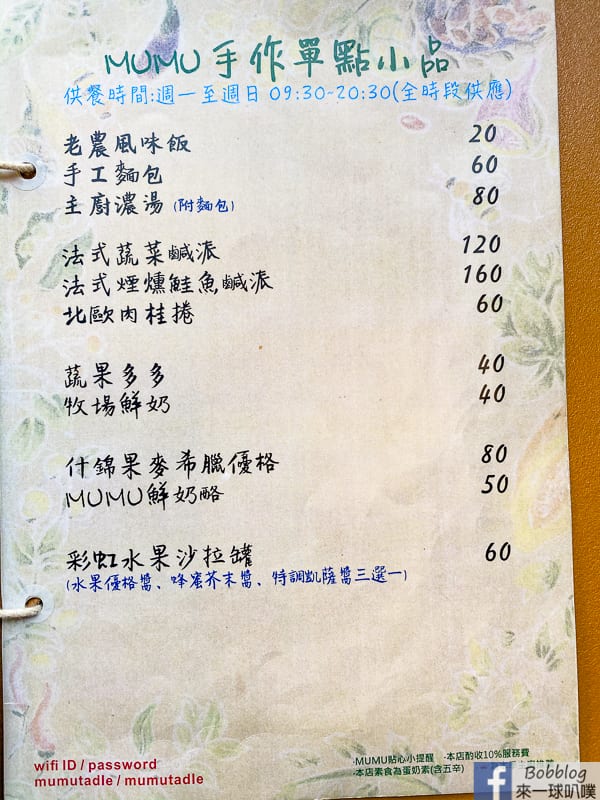 MUMU手作單點小品
供餐時間:週一至週日 09:30~20:30(全時段供應)
老農風味飯 20
手工麵包 60
主廚濃湯 (附麵包) 80
法式蔬菜鹹派 120
法式煙燻鮭魚鹹派 160
北歐肉桂捲 60
蔬果多多 40
牧場鮮奶 40
什錦果麥希臘優格 80
MUMU鮮奶酪 50
彩虹水果沙拉罐 60
(水果優格醬、蜂蜜芥末醬、特調凱薩醬三選一)
wifi ID / password
mumutadle / mumutadle
·MUMU貼心小提醒 ·本店酌收10%服務費
·本店素食為蛋奶素(含五辛)
Bobblog
來一球叭噗